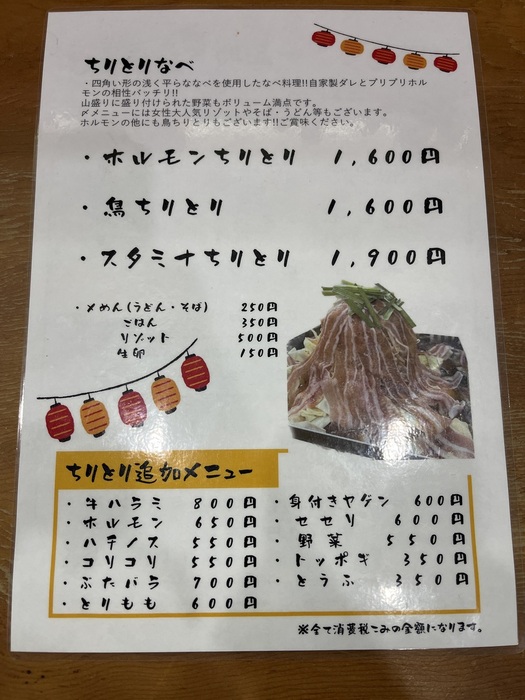 ちりとりなべ
・四角い形の浅く平らななべを使用したなべ料理!!自家製ダレとプリプリホル
モンの相性バッチリ!!
山盛りに盛り付けられた野菜もボリューム満点です。
〆メニューには女性大人気リゾットやそば・うどん等もございます。
ホルモンの他にも鳥ちりとりもございます!!ご賞味ください。
・ホルモンちりとり 1,600円
・鳥ちりとり 1,600円
・スタミナちりとり 1,900円
・〆めん(うどん・そば) 250円
ごはん 350円
リゾット 500円
生卵 150円
ちりとり追加メニュー
・牛ハラミ 800円
・ホルモン 650円
・ハチノス 550円
・コリコリ 550円
・ぶたバラ 700円
・とりもも 600円
・身付きヤゲン 600円
・セセリ 600円
・野菜 550円
・トッポギ 350円
・とうふ 350円
※全て消費税こみの金額になります。